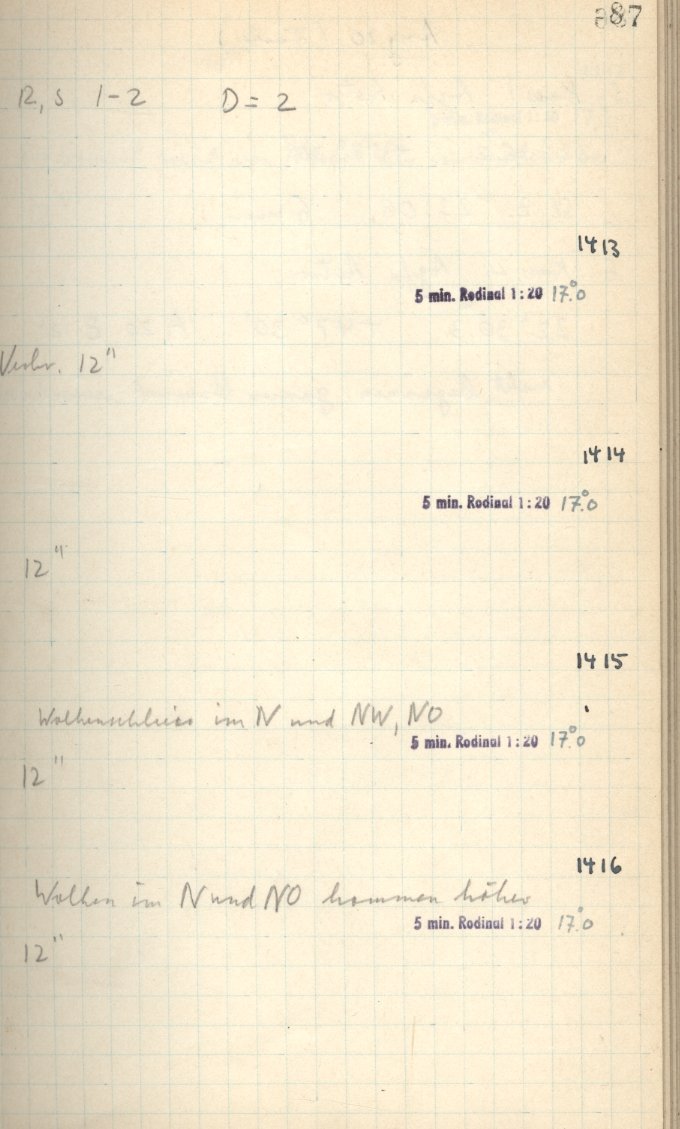 87
R, S 1-2 D = 2
1413
5 min. Rodinal 1:20 17°.0
Verbr. 12"
1414
5 min. Rodinal 1:20 17°.0
12"
1415
Wolkenschleier im N und NW, NO
5 min. Rodinal 1:20 17°.0
12"
1416
Wolken im N und NO kommen höher
5 min. Rodinal 1:20 17°.0
12"